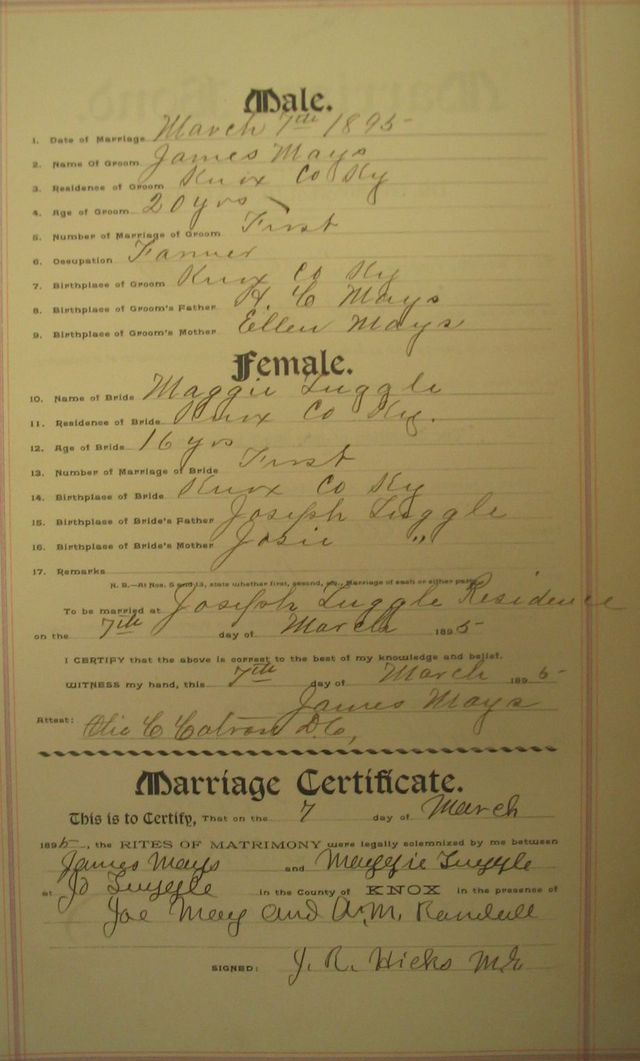 Male.
1. Date of Marriage March 7th 1895
2. Name Of Groom James Mays
3. Residence of Groom Knox Co Ky
4. Age of Groom 20 yrs
5. Number of Marriage of Groom First
6. Occupation Farmer
7. Birthplace of Groom Knox Co Ky
8. Birthplace of Groom's Father H. C Mays
9. Birthplace of Groom's Mother Ellen Mays
Female.
10. Name of Bride Maggie Tuggle
11. Residence of Bride Knox Co Ky.
12. Age of Bride 16 yrs
13. Number of Marriage of Bride First
14. Birthplace of Bride Knox Co Ky
15. Birthplace of Bride's Father Joseph Tuggle
16. Birthplace of Bride's Mother Josie "
17. Remarks
N. B.—At Nos. 5 and 13, state whether first, second, etc., Marriage of each or either party.
To be married at Joseph Tuggle Residence
on the 7th day of March 1895
I CERTIFY that the above is correct to the best of my knowledge and belief.
WITNESS my hand, this 7th day of March 1895
James Mays
Attest: C Catron D.C,
Marriage Certificate.
This is to Certify, That on the 7 day of March
1895, the RITES OF MATRIMONY were legally solemnized by me between
James Mays and Maggie Tuggle
at Jo Tuggle in the County of KNOX in the presence of
Joe May and A.M. Randall
SIGNED: J. R. Hicks